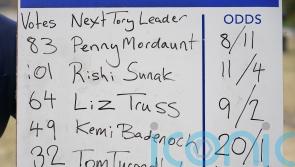 Votes Next Tory Leader ODDS
83 Penny Mordaunt 8/11
101 Rishi Sunak 11/4
64 Liz Truss 9/2
49 Kemi Badenoch 20/1
32 Tom
iconic